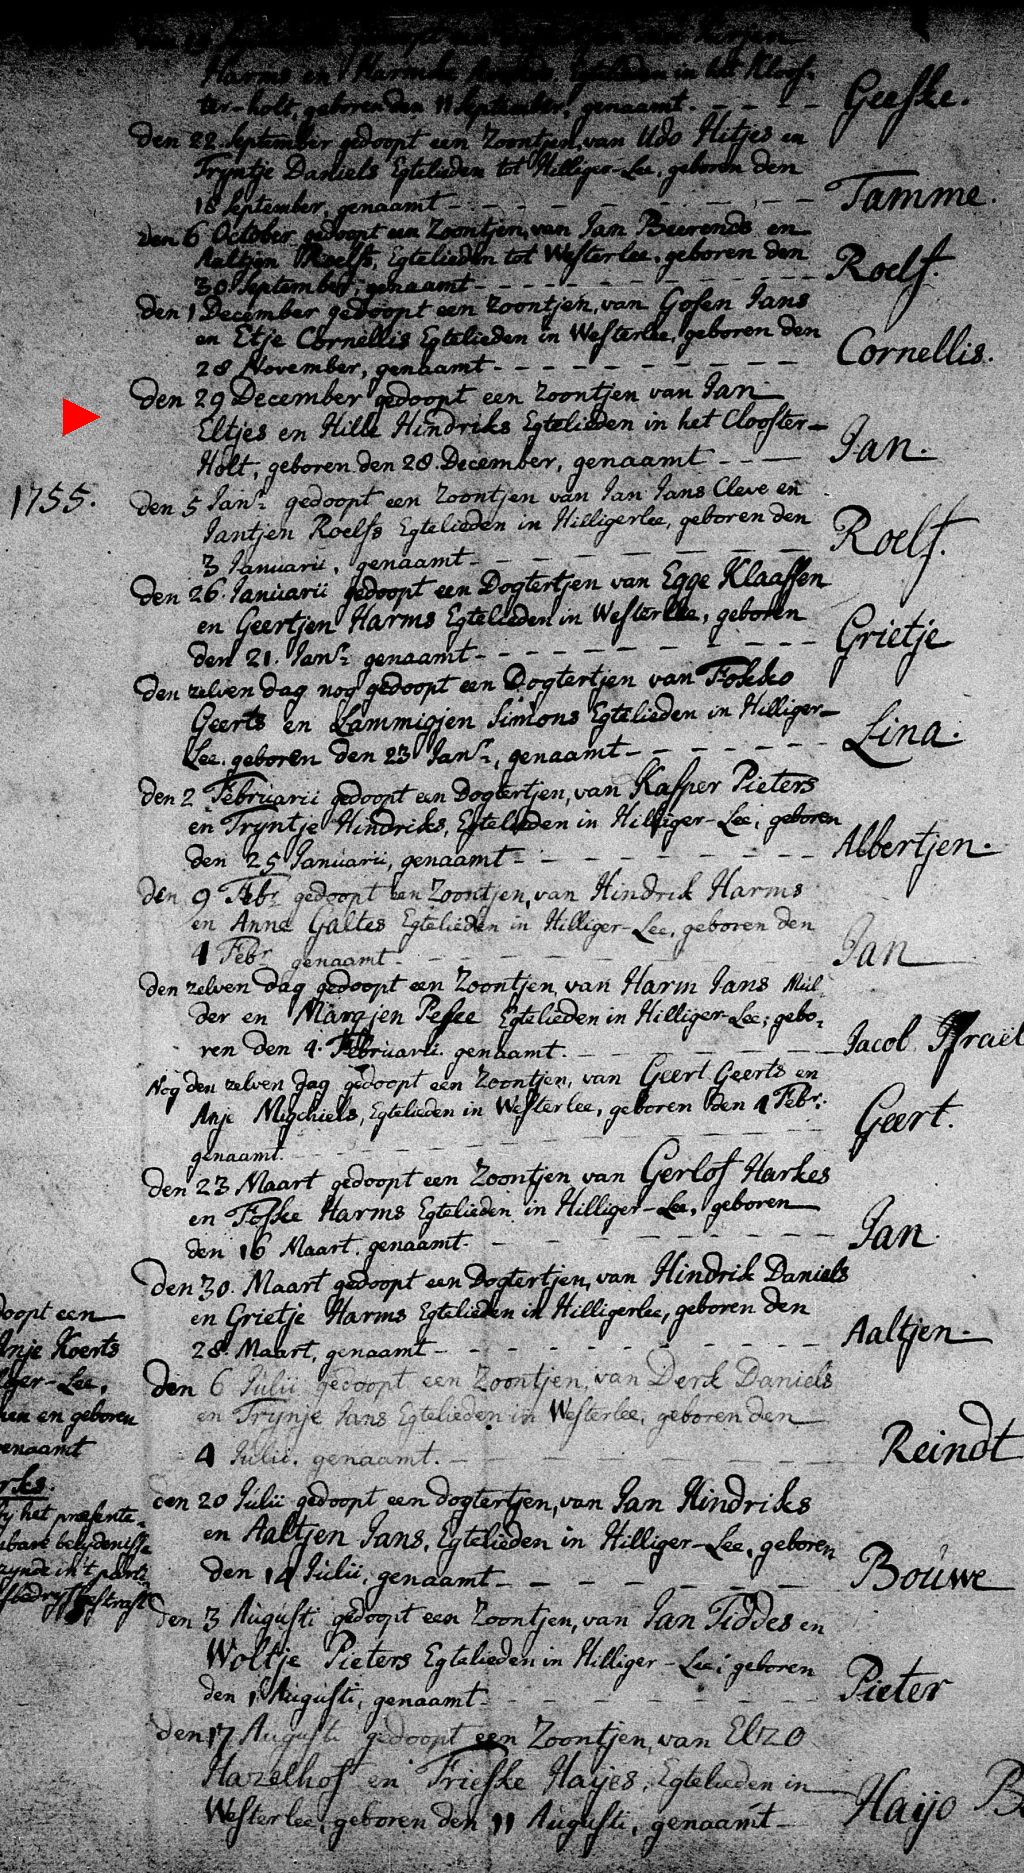 den 15 September gedoopt een Dogtertjen van Jurjen
Harms en Harmke Egtelieden in het Kloos-
ter-holt, geboren den 11 September, genaamt. - - - - Geeske.
den 22. September gedoopt een Zoontjen, van Udo Hitjes en
Tryntje Daniels Egtelieden tot Hilliger-Lee, geboren den
18 September, genaamt - - - - - - - - Tamme.
den 6 October gedoopt een Zoontjen, van Jan Beerends en
Aaltjen Roelfs, Egtelieden tot Westerlee, geboren den
30 September, genaamt - - - - - - - - Roelf.
den 1 December gedoopt een Zoontjen, van Gosen Jans
en Etje Cornellis Egtelieden in Westerlee, geboren den
28 November, genaamt - - - - - - - - Cornellis.
den 29 December gedoopt een Zoontjen van Jan
Eltjes en Hille Hindriks Egtelieden in het Clooster-
Holt, geboren den 28. December, genaamt - - - Jan.
1755. den 5 Janr. gedoopt een Zoontjen van Jan Jans Cleve en
Jantjen Roelfs Egtelieden in Hilligerlee, geboren den
3 Januarii, genaamt - - - - - - - - Roelf.
den 26. Januarii gedoopt een Dogtertjen van Egge Klaassen
en Geertjen Harms Egtelieden in Westerlee, geboren
den 21. Janr. genaamt - - - - - - - - Grietje
den zelven dag nog gedoopt een Dogtertjen van Fokko
Geerts en Lammigjen Simons Egtelieden in Hilliger-
Lee. geboren den 23 Janr., genaamt - - - - - - Lina.
den 2 Februarii gedoopt een Dogtertjen, van Kasper Pieters
en Tryntje Hindriks, Egtelieden in Hilliger-Lee, geboren
den 25 Januarii, genaamt - - - - - - - - Albertjen.
den 9 Febr. gedoopt een Zoontjen, van Hindrik Harms
en Anna Galtes Egtelieden in Hilliger-Lee, geboren den
4 Febr. genaamt - - - - - - - - Jan
den zelven dag gedoopt een Zoontjen, van Harm Jans Mul-
der en Margjen Pesee Egtelieden in Hilliger-Lee; gebo-
ren den 4. Februarii. genaamt. - - - - - - Jacol Israel
Nog den zelven dag gedoopt een Zoontjen, van Geert Geerts en
Anje Migchiels, Egtelieden in Westerlee, geboren den 4 Febr:
genaamt. - - - - - - - - Geert.
den 23 Maart gedoopt een Zoontjen van Gerlof Harkes
en Foskee Harms Egtelieden in Hilliger-Lee, geboren
den 16 Maart. genaamt - - - - - - - - Jan
den 30. Maart gedoopt een Dogtertjen, van Hindrik Daniels
en Grietje Harms Egtelieden in Hilligerlee, geboren den
28. Maart, genaamt - - - - - - - - Aaltjen.
den 6 Julii gedoopt een Zoontjen, van Derk Daniels
en Trynje Jans Egtelieden in Westerlee, geboren den
4 Julii. genaamt. - - - - - - - - Reindt
den 20 Julii gedoopt een dogtertjen, van Jan Hindriks
en Aaltjen Jans, Egtelieden in Hilliger-Lee, geboren
den 14 Julii, genaamt - - - - - - - - Bouwe
den 3 Augusti gedoopt een Zoontjen, van Jan Tiddes en
Woltje Pieters Egtelieden in Hilliger-Lee; geboren
den 1 Augusti, genaamt - - - - - - - - Pieter
den 17 Augusti gedoopt een Zoontjen, van Elzo
Hazelhof en Frieske Hayes, Egtelieden in
Westerlee, geboren den 11 Augusti, genaamt - Hayo
doopt een
Anje Koerts
ger-Lee,
en geboren
enaamt
rks.
by het presente
bare belydenisse
zynde in't
gestraft